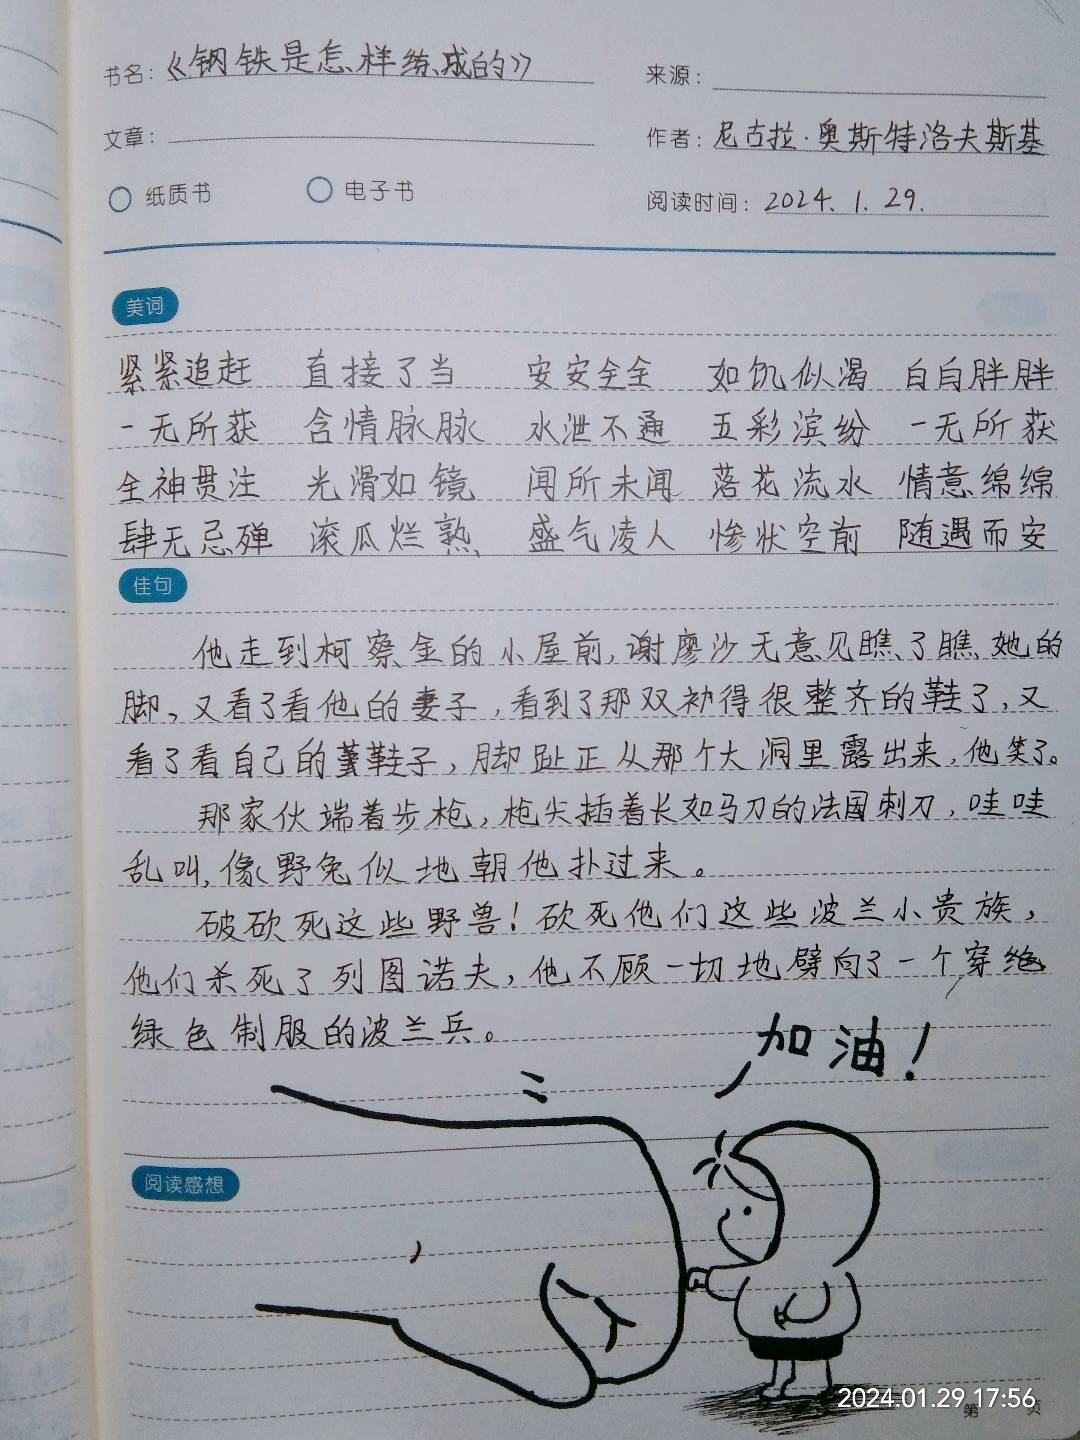 书名：《钢铁是怎样练成的》
来源：
文章：
作者：尼古拉·奥斯特洛夫斯基
纸质书 电子书
阅读时间：2024.1.29.
美词
紧紧追赶 直接了当 安安全全 如饥似渴 白白胖胖
一无所获 含情脉脉 水泄不通 五彩滨纷 一无所获
全神贯注 光滑如镜 闻所未闻 落花流水 情意绵绵
肆无忌殚 滚瓜烂熟 盛气凌人 惨状空前 随遇而安
佳句
他走到柯察金的小屋前,谢廖沙无意见瞧了瞧她的
脚。又看了看他的妻子，看到了那双补得很整齐的鞋了，又
看了看自己的鞋子，脚趾正从那个大洞里露出来，他笑了。
那家伙端着步枪，枪尖插着长如马刀的法国刺刀，哇哇
乱叫，像野兔似地朝他扑过来。
破砍死这些野兽！砍死他们这些波兰小贵族，
他们杀死了列图诺夫，他不顾一切地劈向了一个穿绝
绿色制服的波兰兵。
加油！
阅读感想
2024.01.29 17:56
第 页